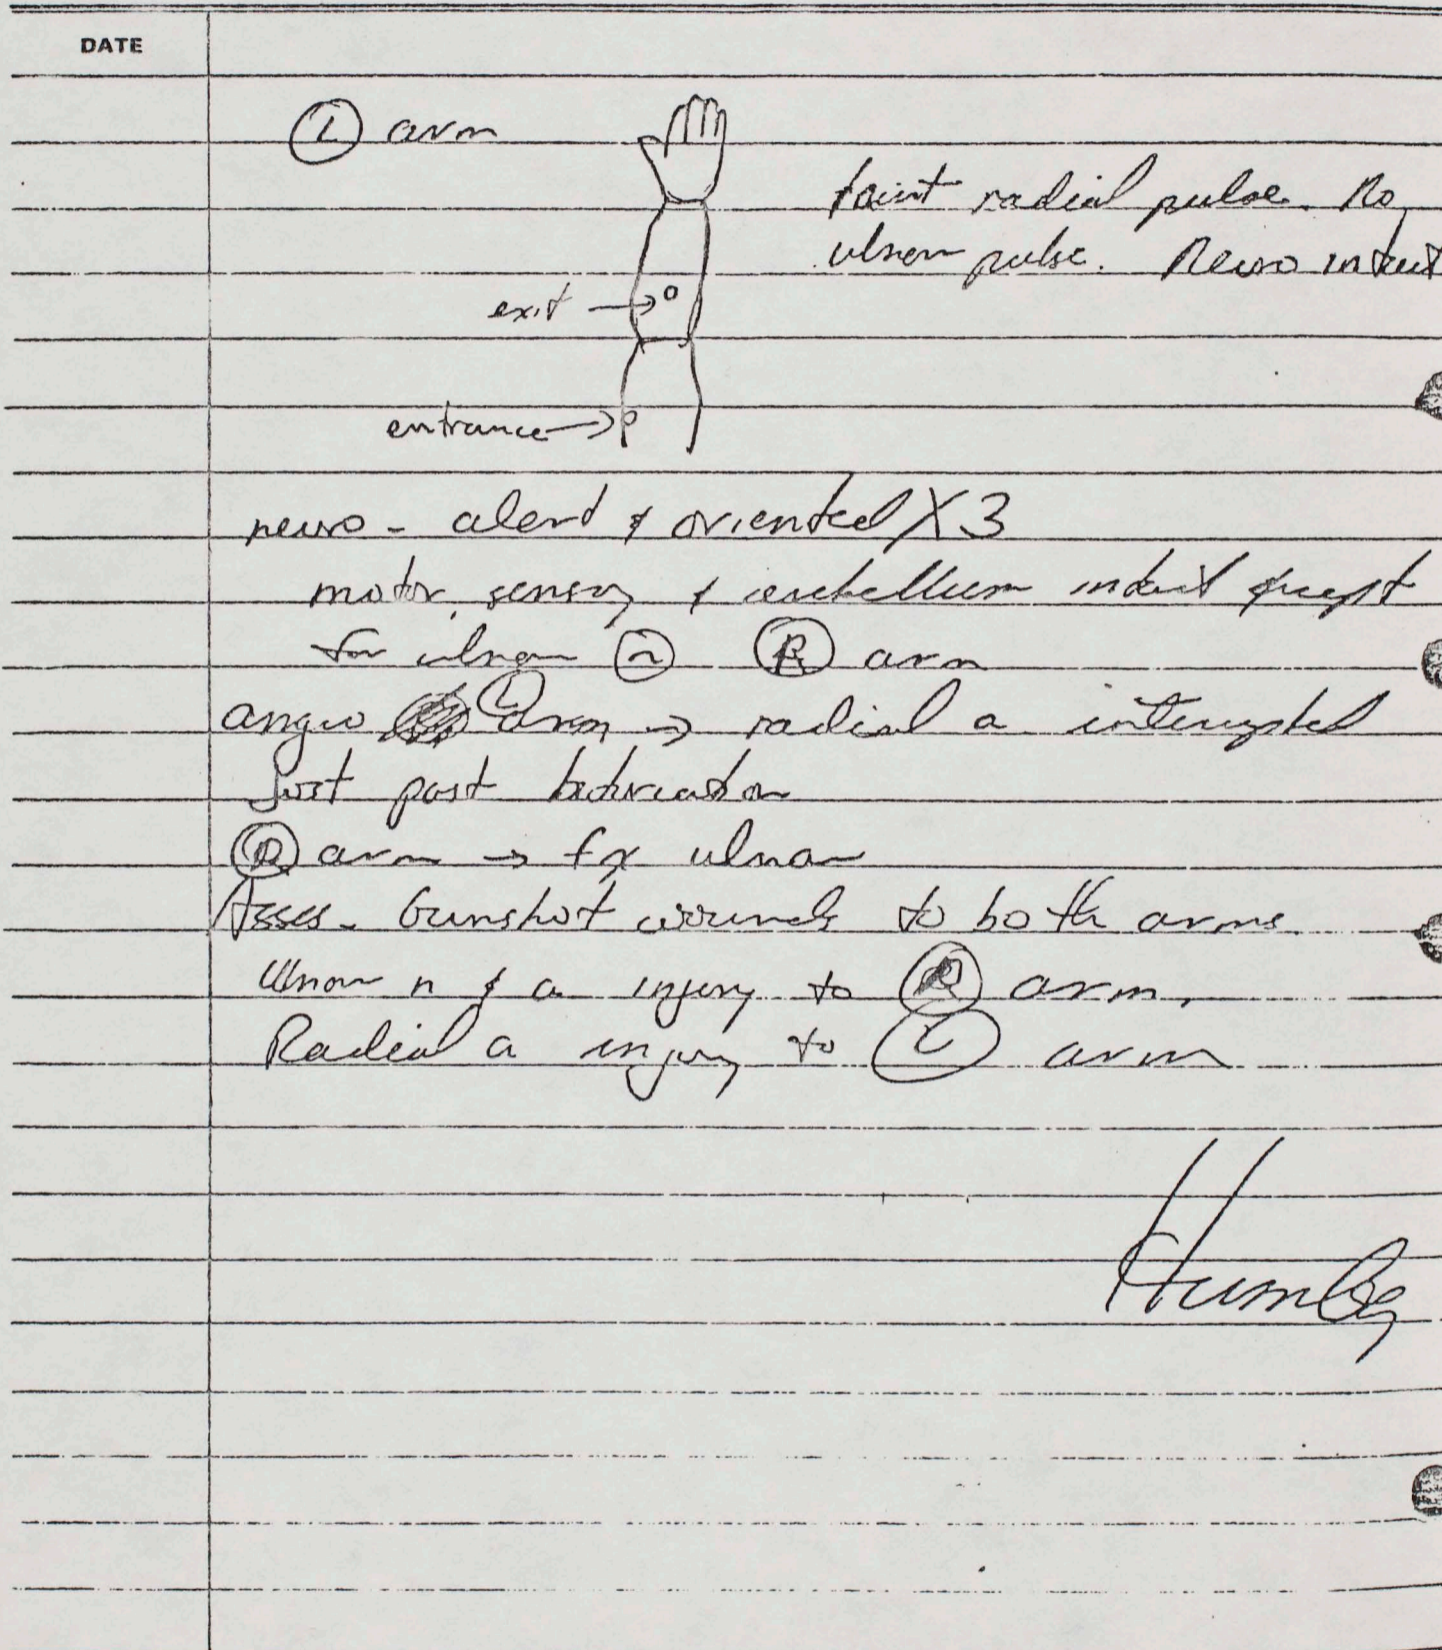 DATE
Ⓛ arm
faint radial pulse. No
ulnar pulse. Neuro intact
exit →
entrance →
neuro - alert & oriented X3
motor, sensory & cerebellum intact except
for ulnar ⓝ Ⓡ arm
angio Ⓛ arm → radial a interrupted
just past bifurcation
Ⓡ arm → fx ulnar
Asses - Gunshot wounds to both arms.
Ulnar n & a injury to Ⓡ arm.
Radial a injury to Ⓛ arm